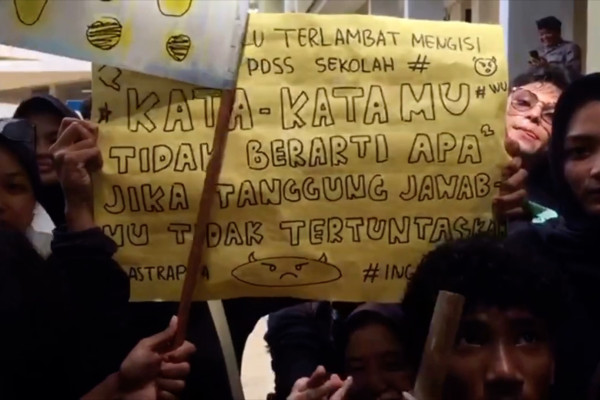 TERLAMBAT MENGISI
PDSS SEKOLAH #
KATA-KATA MU
TIDAK BERARTI APA²
JIKA TANGGUNG JAWAB-
MU TIDAK TERTUNTASKAN